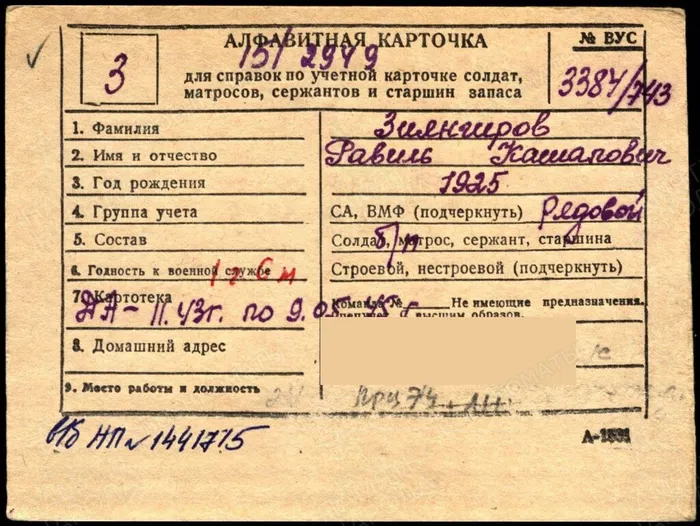 АЛФАВИТНАЯ КАРТОЧКА
№ ВУС
3
151 2949
для справок по учетной карточке солдат,
матросов, сержантов и старшин запаса
3387/743
1. Фамилия Зиянгиров
2. Имя и отчество Равиль Кашапович
3. Год рождения 1925
4. Группа учета СА, ВМФ (подчеркнуть) Рядовой
5. Состав Солдат, матрос, сержант, старшина б/п
6. Годность к военной службе Строевой, нестроевой (подчеркнуть)
1 г 6 м
7. Картотека Команда № Не имеющие предназначения.
ДА - II.43г. по 9.05.45г
высшим образов.
8. Домашний адрес
9. Место работы и должность
НП № 1441715
А-1831